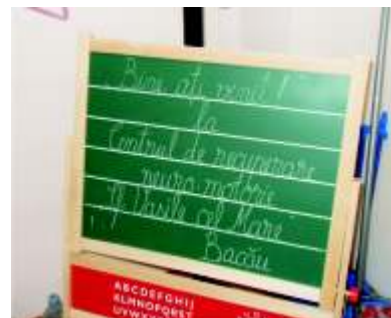 Bine ați venit!
la
Centrul de recuperare
neuro motorie
"Sf Vasile cel Mare"
Bacău
ABCDEFGHIJ
KLMNOPQRST
UVWXYZ